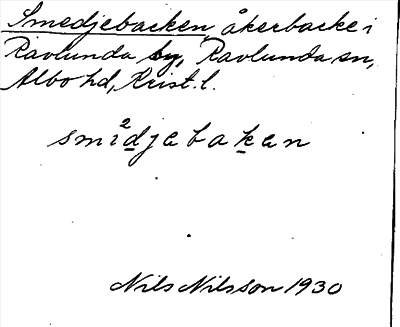 Smedjebacken, åkerbacke i
Ravlunda by, Ravlunda sn,
Albo hd, Krist. l.
smi²djebakan
Nils Nilsson 1930